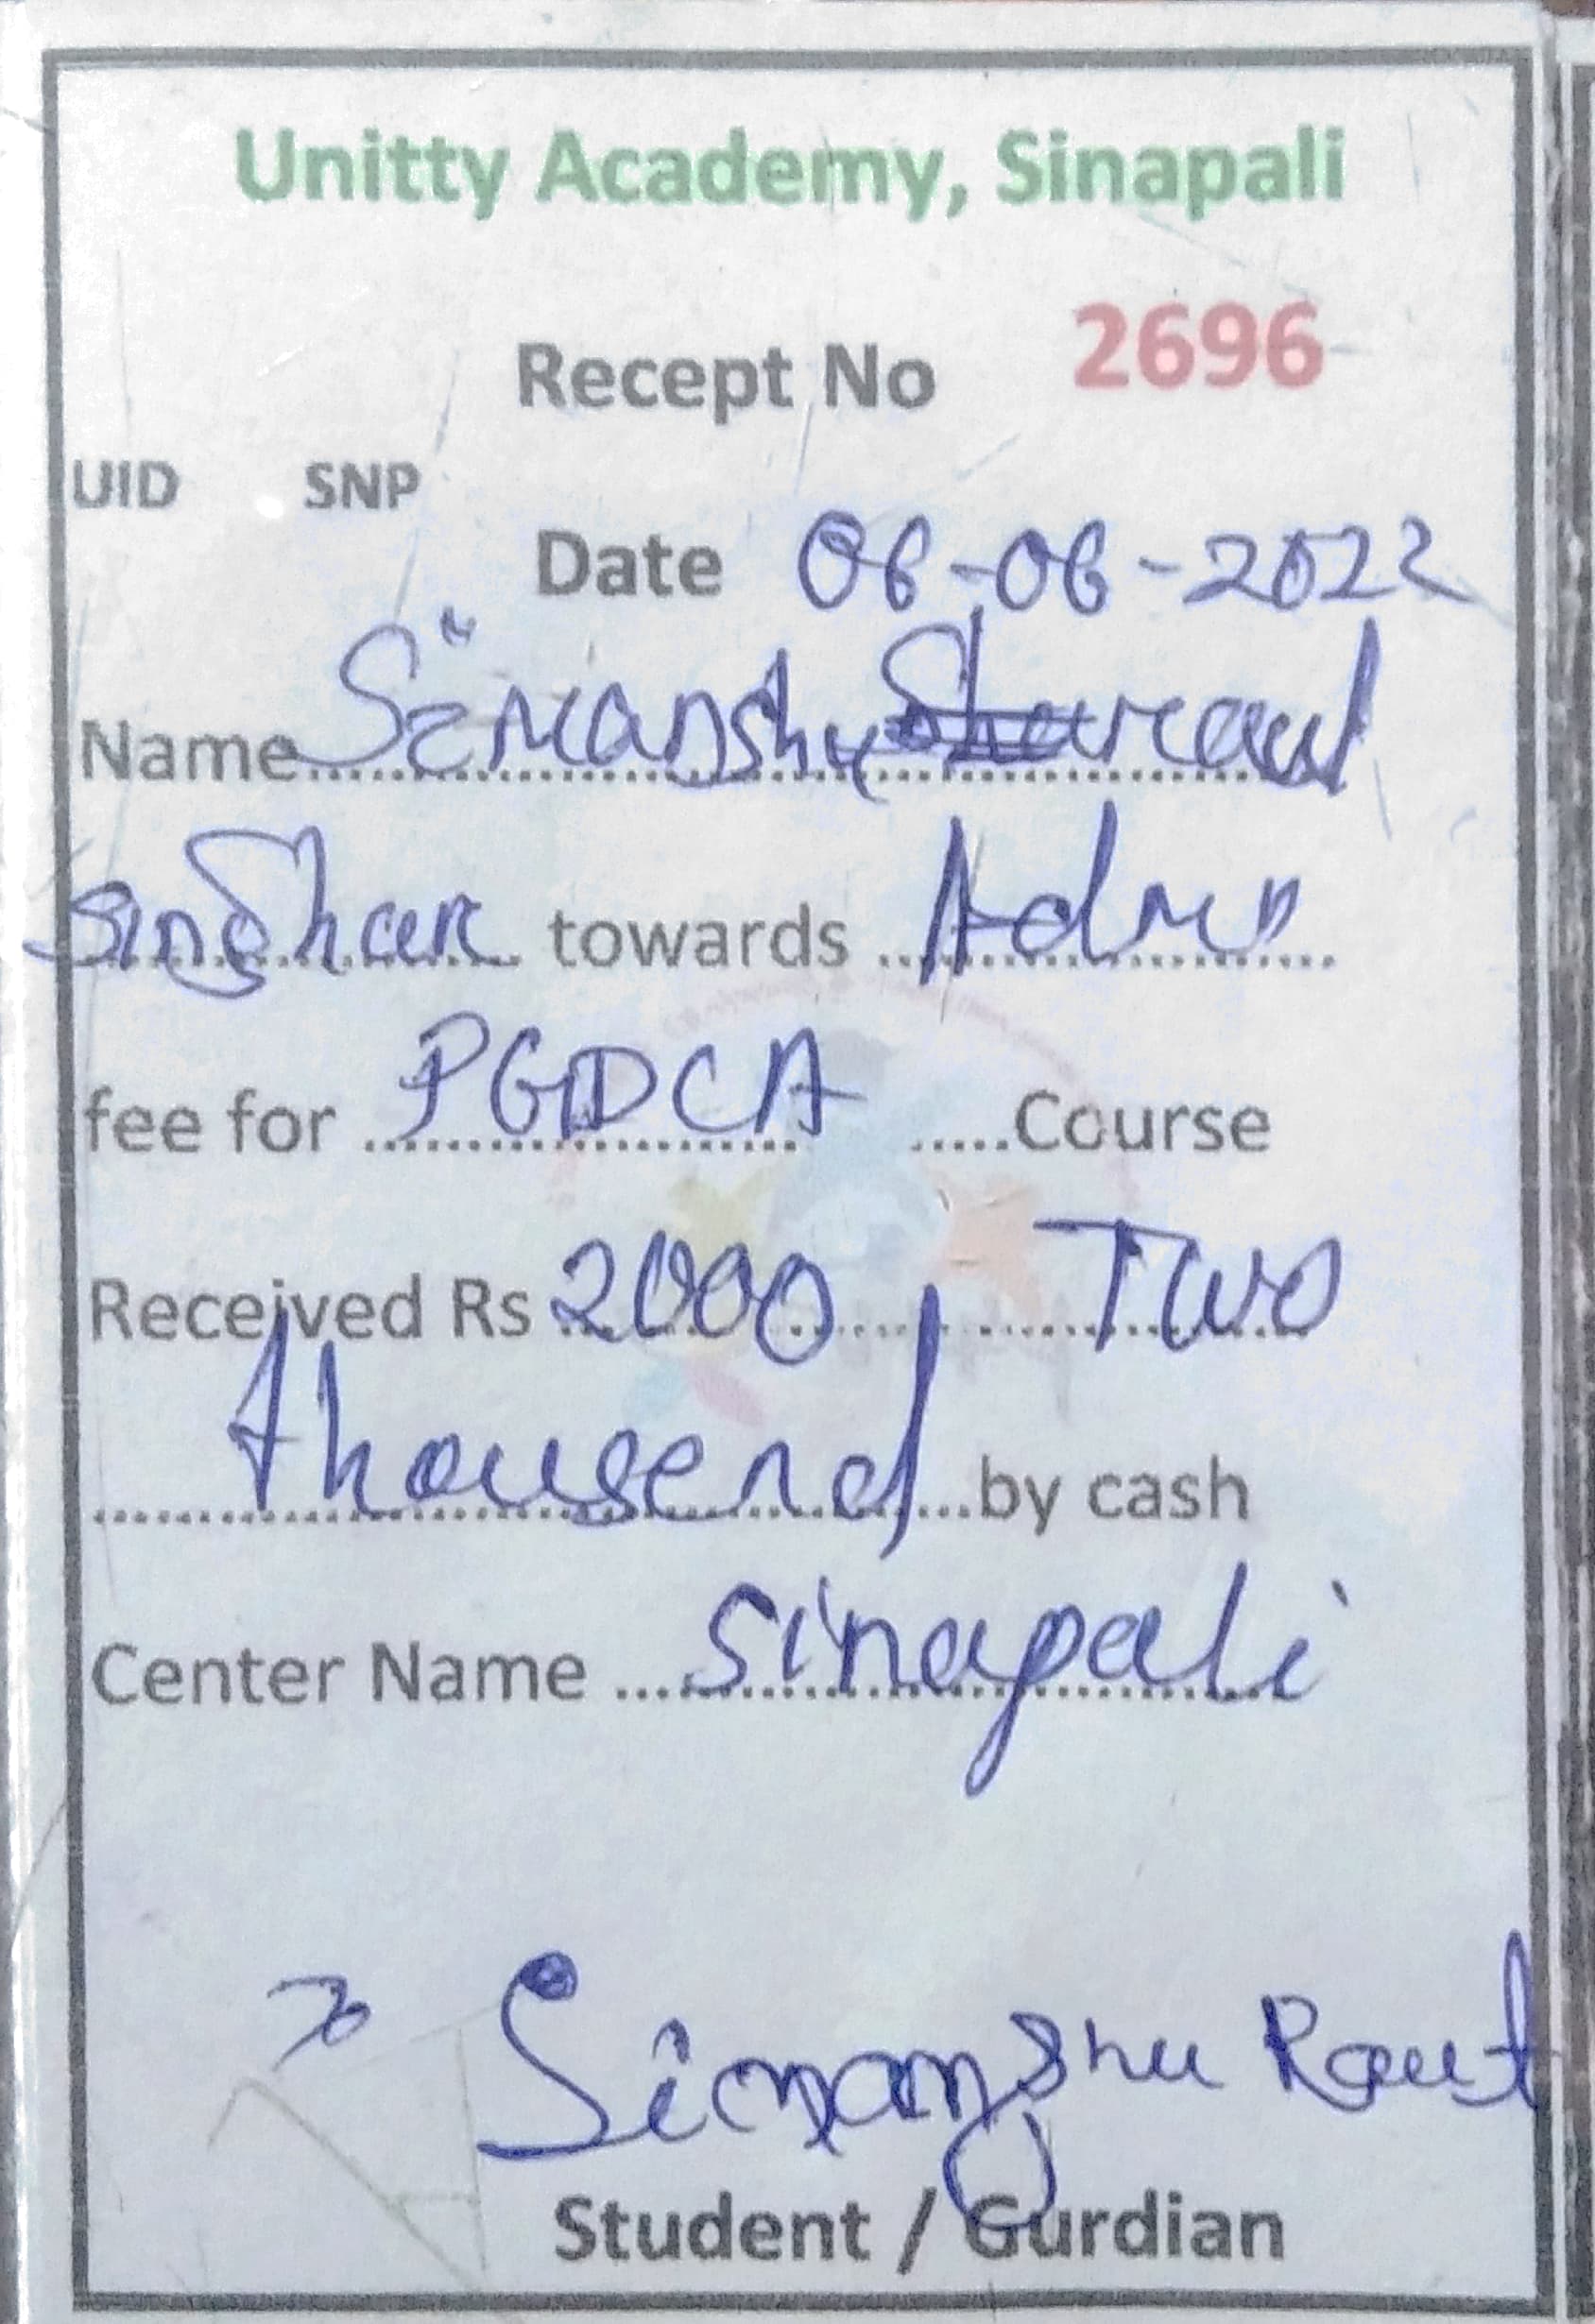 Unitty Academy, Sinapali
Recept No 2696
UID SNP
Date 06-06-2022
Name Simanshu raut
towards Admn
fee for PGDCA Course
Received Rs 2000 Two
thousend by cash
Center Name Sinapali
Simanshu Raut
Student / Gurdian